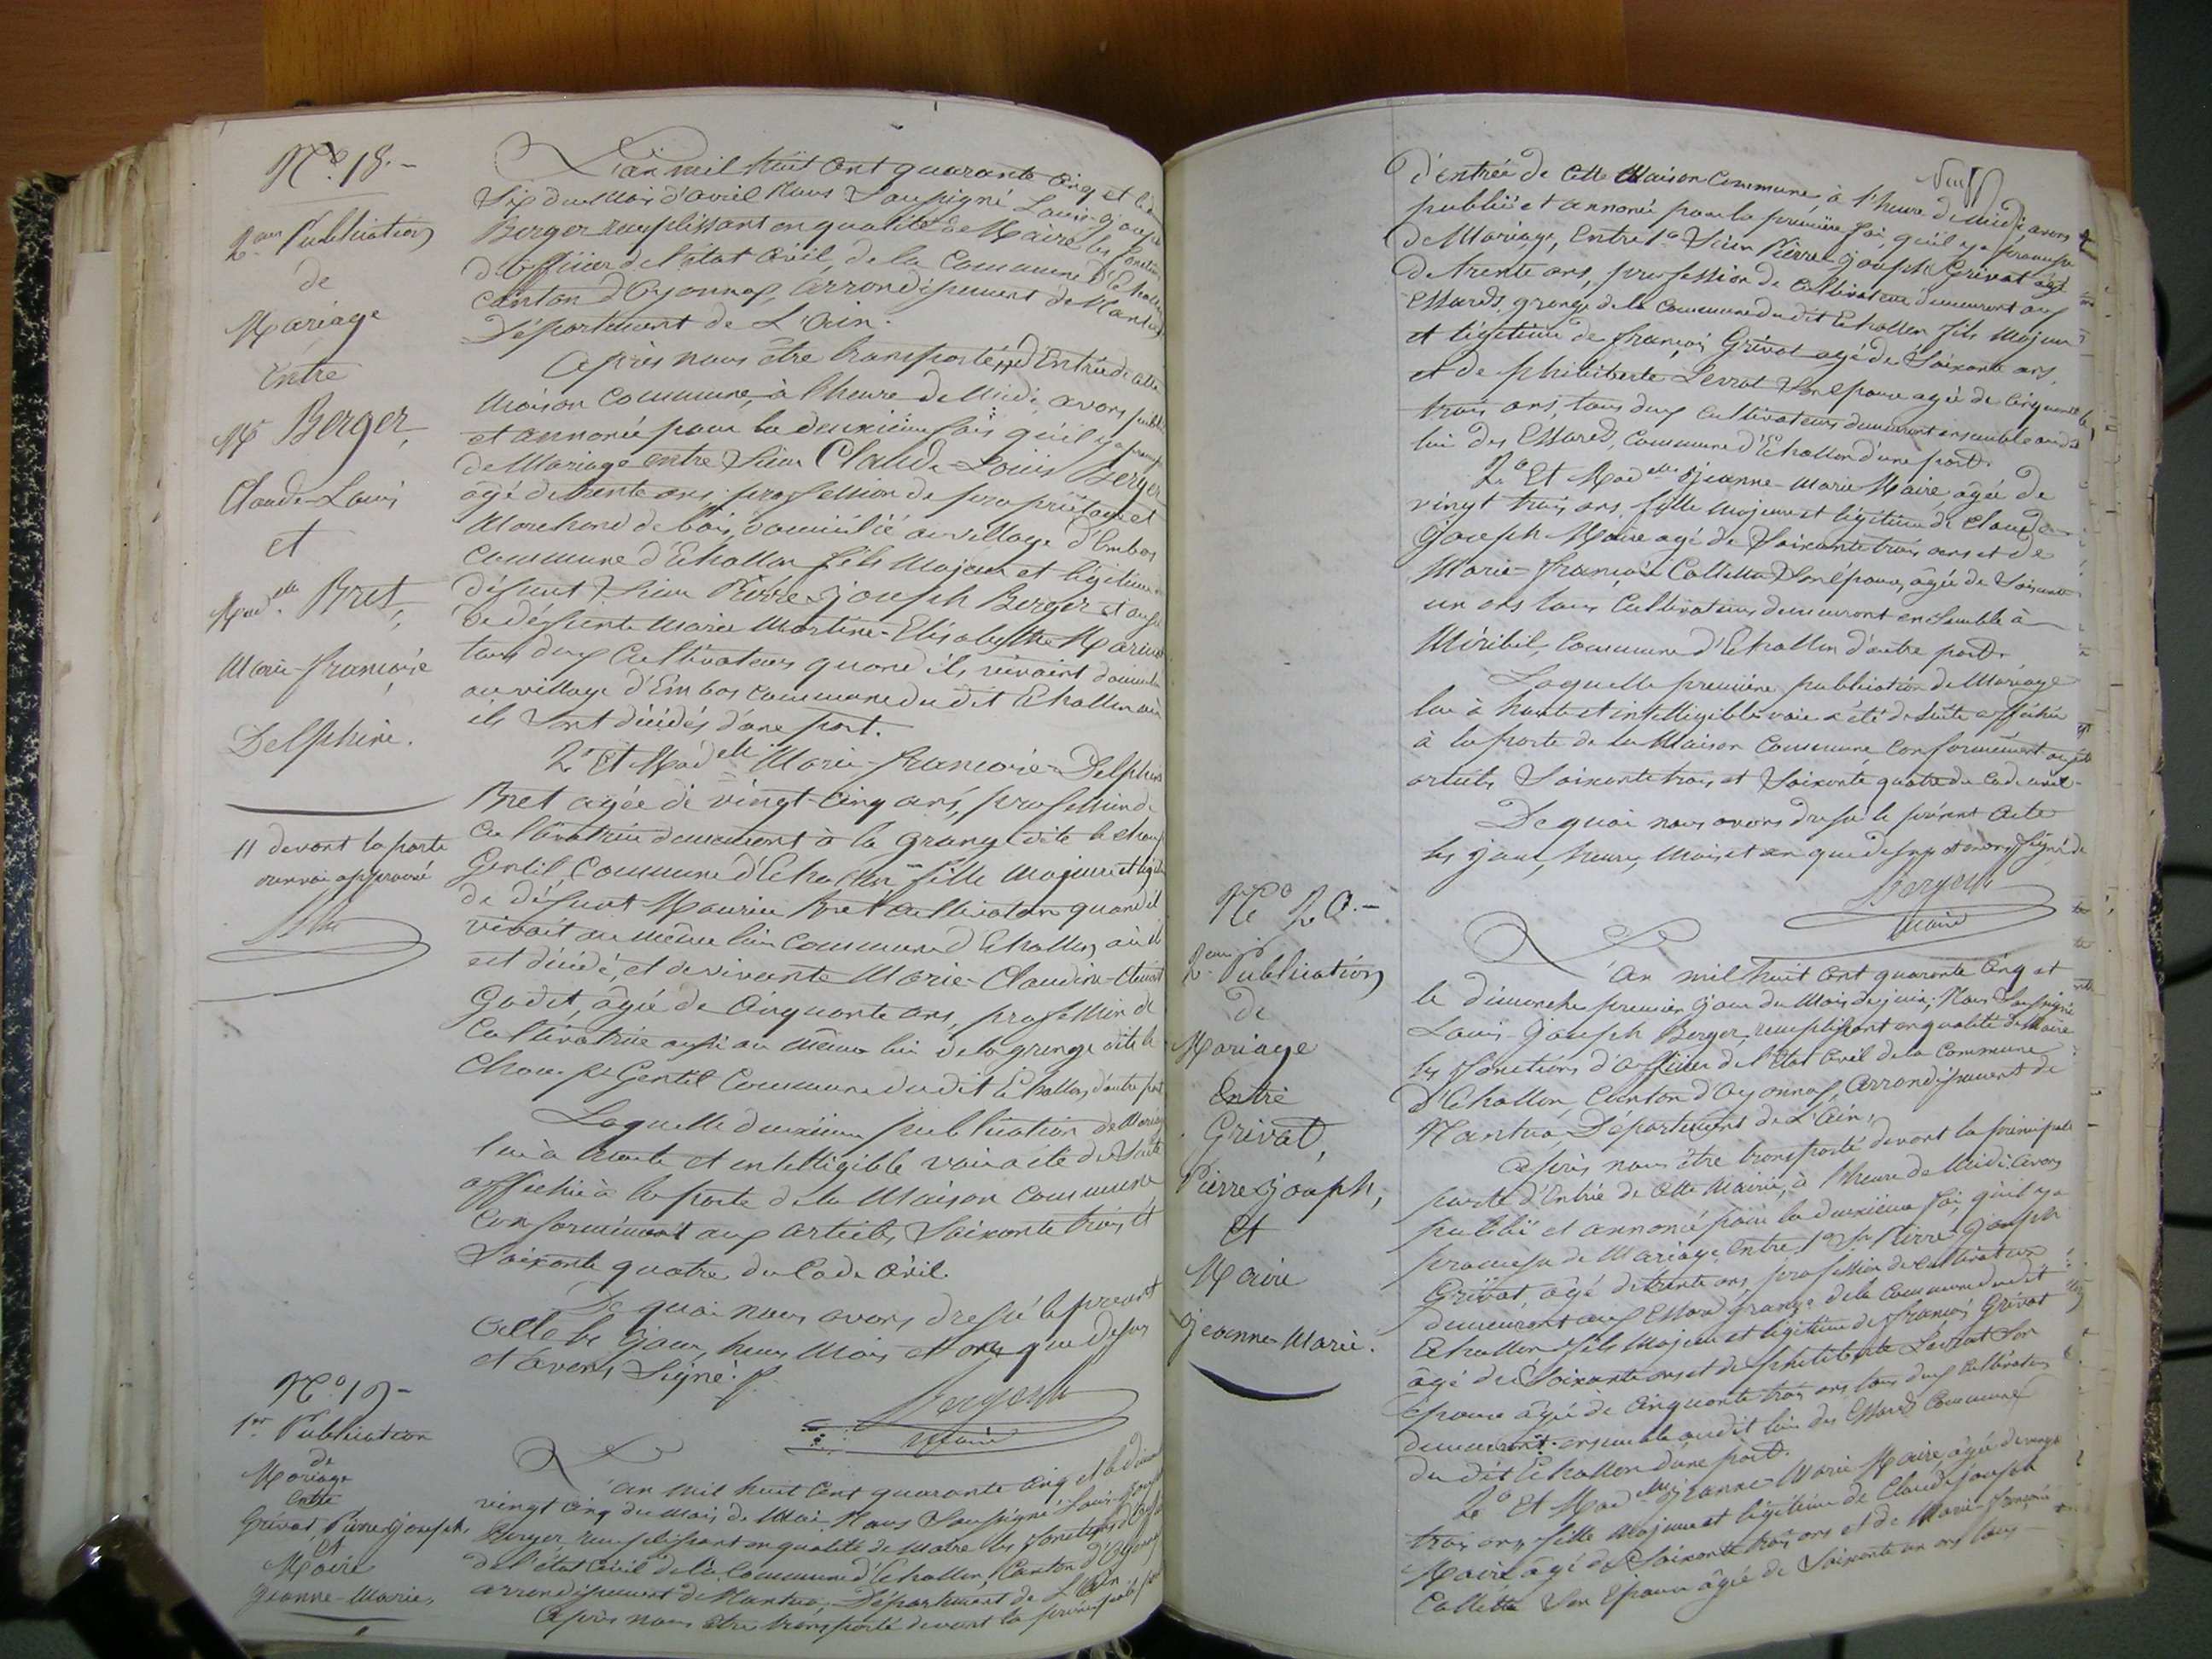 N.o 18.-
2.eme Publication
de
Mariage
Entre
Mr Berger,
Claude-Louis
et
Mad.elle Bret,
Marie-françoise
Delphine.
11 devant la porte
renvoi approuvé
L'an mil huit cent quarante cinq et le
Six du mois d'avril Nous Soussigné Louis-Joseph
Berger remplissant en qualité de Maire les fonctions
d'officier de l'état Civil, de la Commune d'Echallon
Canton d'Oyonnax, arrondissement de Nantua
Département de L'Ain.
Après nous être transporté 11 d'Entrée de cette
Maison Commune, à l'heure de Midi, avons publié
et annoncé pour la deuxième fois qu'il y a promesse
de Mariage entre Sieur Claude-Louis Berger
âgé de trente ans, profession de propriétaire et
Marchand de bois, domicilié au village d'Embos
Commune d'Echallon fils Majeur et légitime
défunt Sieur Pierre-joseph Berger et aussi
de défunte Marie Martine-Elisabethe Marinet
tous deux Cultivateurs quand ils vivaint
au village d'Embos Commune du dit Echallon où
ils sont décédés d'une part.
2.o Et Mad.elle Marie-françoise-Delphine
Bret agée de vingt-cinq ans, profession de
Cultivatrice demeurant à la Grange dite le champ
Gentil, Commune d'Echallon fille Majeure et légitime
de défunt Maurice Bret Cultivateur quand il
vivait au même lieu Commune d'Echallon où il
est décédé, et de vivante Marie-Claudine-
Godet, âgée de Cinquante ans, profession de
Cultivatrice aussi au même lieu de la grange dite le
Champ Gentil Commune du dit Echallon, d'autre part
Laquelle deuxième publication de Mariage
lue à haute et intelligible voix a été de Suite
affichée à la porte de la Maison Commune
Conformément aux articles Soixante trois, et
Soixante quatre du Code Civil.
De quoi nous avons dressé le présent
Acte les Jour, heure, Mois et an que dessus
et avons Signé.
Maire
N.o 19-
1.ere Publication
de
Mariage
Entre
Grivat, Pierre joseph,
et
Maire
Jeanne-Marie,
L'an mil huit cent quarante cinq et le dimanche
vingt cinq du mois de Mai, Nous Soussigné Louis-Joseph
Berger remplissant en qualité de Maire les fonctions d'officier
de l'état Civil de la Commune d'Echallon, Canton d'Oyonnax
arrondissement de Nantua, Département de L'Ain.
Après nous être transporté devant la principale porte
d'entrée de cette Maison Commune, à l'heure de Midi, avons
publié et annoncé pour la première fois, qu'il y a promesse
de Mariage, Entre 1.o Sieur Pierre-joseph Grivat âgé
de trente ans, profession de Cultivateur demeurant aux
Essards, grange de la Commune du dit Echallon fils Majeur
et légitime de françois Grivat agé de Soixante ans,
et de philiberte Levrat Son épouse agée de Cinquante
trois ans, tous deux Cultivateurs demeurant ensemble au dit
lieu des Essards, Commune d'Echallon d'une part.
2.o Et Mad.elle Jeanne-Marie Maire, âgée de
vingt trois ans, fille majeure et légitime de Claude
Joseph Maire agé de Soixante trois ans et de
Marie-françoise Collettaz Son épouse, âgée de Soixante
un ans tous Cultivateurs demeurant ensemble à
Miribel, Commune d'Echallon d'autre part.
Laquelle première publication de Mariage
lue à haute et intelligible voix a été de Suite affichée
à la porte de la Maison Commune, Conformément aux
articles Soixante trois et Soixante quatre du Code civil.
De quoi nous avons dressé le présent Acte
les jour, heure, Mois et an que dessus et avons Signé.
Maire
N.o 20.-
2.eme Publication
de
Mariage
Entre
Grivat,
Pierre joseph,
Et
Maire
Jeanne-Marie.
L'an mil huit cent quarante cinq et
le dimanche premier jour du Mois de juin, Nous Soussigné
Louis Joseph Berger remplissant en qualité de Maire
les fonctions d'officier de l'Etat Civil de la Commune
d'Echallon, Canton d'Oyonnax, Arrondissement de
Nantua Département de L'Ain,
Après nous être transporté devant la principale
porte d'Entrée de Cette Mairie, à l'heure de Midi, avons
publié et annoncé pour la deuxième fois, qu'il y a
promesse de Mariage, entre 1.o Sr Pierre Joseph
Grivat, âgé de trente ans, profession de Cultivateur
demeurant aux Essards grange de la Commune du dit
Echallon fils Majeur et légitime de françois Grivat
âgé de Soixante ans et de philiberte Levrat Son
épouse âgée de Cinquante trois ans, tous deux Cultivateurs
demeurant ensemble au dit lieu des Essards Commune
du dit Echallon d'une part.
2.o Et Mad.elle Jeanne-Marie Maire, âgée de vingt
trois ans, fille Majeure et légitime de Claude Joseph
Maire âgé de Soixante trois ans et de Marie-françoise
Collettaz Son Epouse âgée de Soixante un ans tous